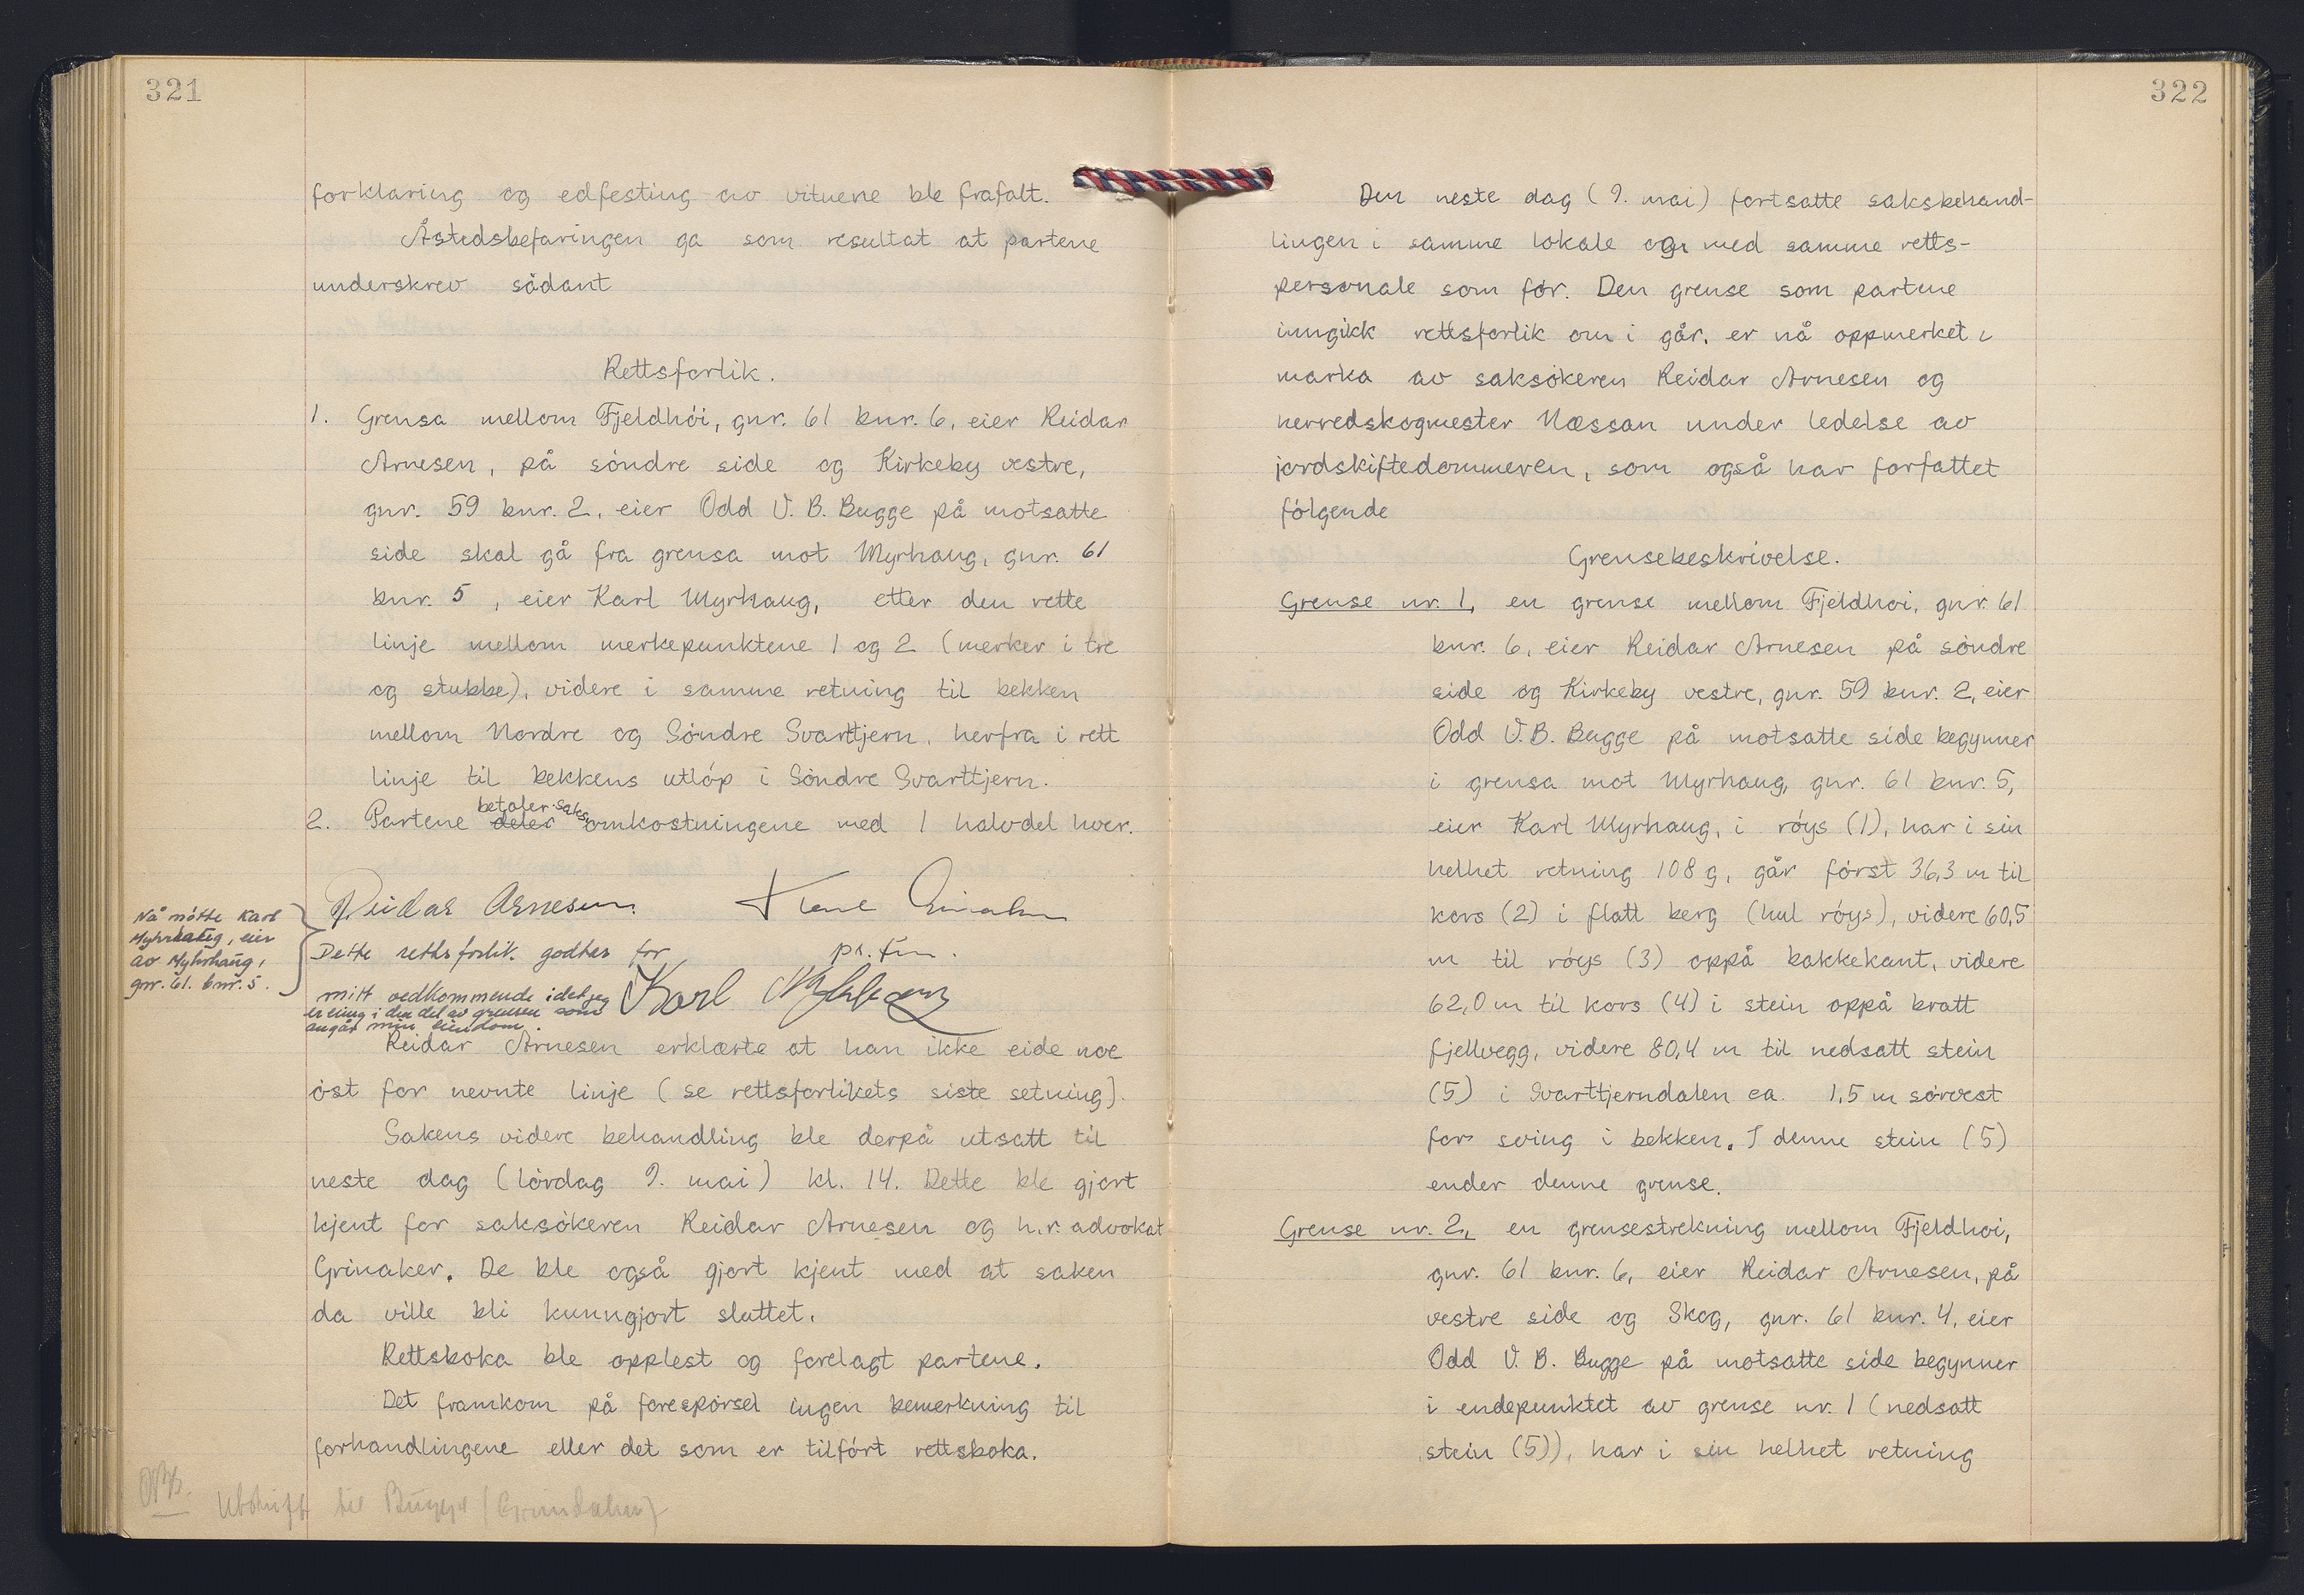 321
forklaring og edfesting av vitnene ble frafalt.
Åstedsbefaringen ga som resultat at partene
underskrev sådant
Rettsforlik.
1. Grensa mellom Fjeldhöi, gnr. 61 bnr. 6, eier Reidar
Arnesen, på söndre side og Kirkeby vestre,
gnr. 59 bnr. 2, eier Odd V. B. Bugge på motsatte
side skal gå fra grensa mot Myrhaug, gnr. 61
bnr. 5, eier Karl Myrhaug, etter den rette
linje mellom merkepunktene 1 og 2 (merker i tre
og stubbe), videre i samme retning til bekken
mellom Nordre og Söndre Svarttjern, herfra i rett
linje til bekkens utlöp i Söndre Svarttjern.
betaler saks
2. Partene deler omkostningene med 1 halvdel hver.
Reidar Arnesen.
Nå mötte Karl
Myhrhaug, eier
av Myhrhaug,
gnr. 61. bnr. 5.
Dette rettsforlik godtas for pr. fm.
mitt vedkommende idet jeg Karl Myhrhaug
er enig i den del av grensen som
angår min eiendom.
Reidar Arnesen erklærte at han ikke eide noe
öst for nevnte linje (se rettsforlikets siste setning).
Sakens videre behandling ble derpå utsatt til
neste dag (lördag 9. mai) kl. 14. Dette ble gjort
kjent for saksökeren Reidar Arnesen og h.r. advokat
Grinaker. De ble også gjort kjent med at saken
da ville bli kunngjort sluttet.
Rettsboka ble opplest og forelagt partene.
Det framkom på forespörsel ingen bemerkning til
forhandlingene eller det som er tilfört rettsboka.
Utskrift til Bugge
322
Den neste dag (9. mai) fortsatte saksbehand-
lingen i samme lokale og med samme retts-
personale som för. Den grense som partene
inngikk rettsforlik om i går, er nå oppmerket i
marka av saksökeren Reidar Arnesen og
herredskogmester Næssan under ledelse av
jordskiftedommeren, som også har forfattet
fölgende
Grensebeskrivelse.
Grense nr. 1, en grense mellom Fjeldhoi, gnr. 61
bnr. 6, eier Reidar Arnesen på söndre
side og Kirkeby vestre, gnr. 59 bnr. 2, eier
Odd V. B. Bugge på motsatte side begynner
i grensa mot Myrhaug, gnr. 61 bnr. 5,
eier Karl Myrhaug, i röys (1), har i sin
helhet retning 108 g, går först 36,3 m til
kors (2) i flatt berg (hul röys), videre 60,5
m til röys (3) oppå bakkekant, videre
62,0 m til kors (4) i stein oppå bratt
fjellvegg, videre 80,4 m til nedsatt stein
(5) i Svarttjerndalen ca. 1,5 m sörvest
for sving i bekken. I denne stein (5)
ender denne grense.
Grense nr. 2, en grensestrekning mellom Fjeldhoi,
gnr. 61 bnr. 6, eier Reidar Arnesen, på
vestre side og Skog, gnr. 61 bnr. 4, eier
Odd V. B. Bugge på motsatte side begynner
i endepunktet av grense nr. 1 (nedsatt
stein (5)), har i sin helhet retning